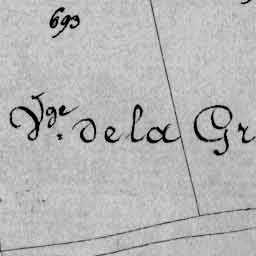 693
Vge. de la Gr